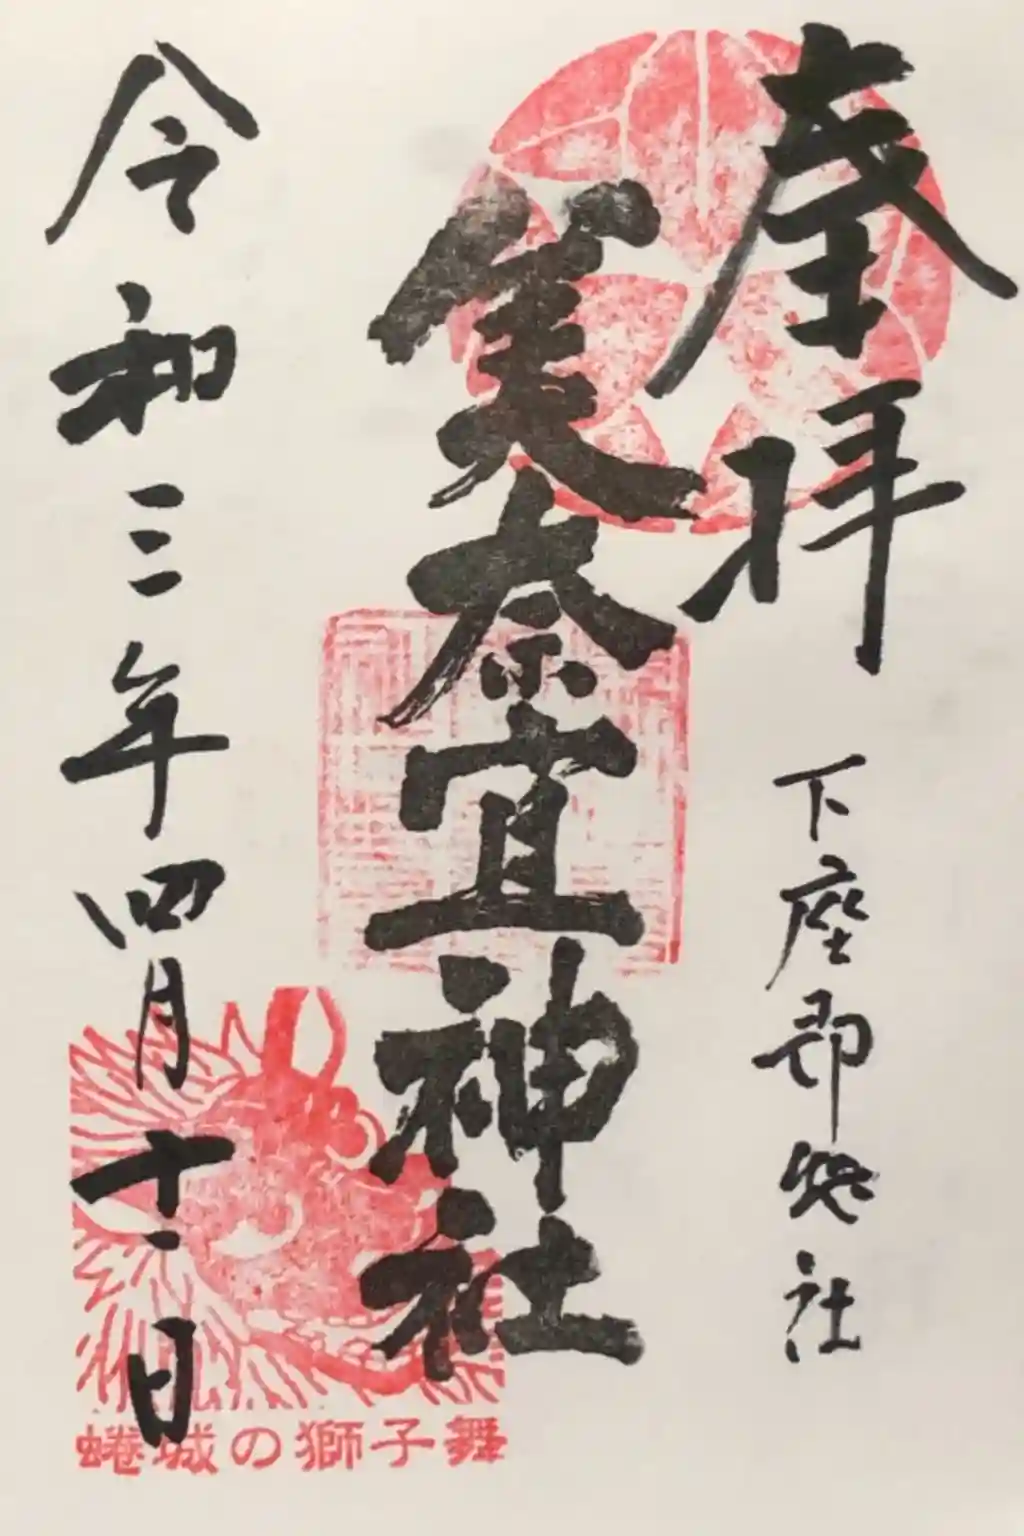 奉拝
下座郡総社
美奈宜神社
令和三年四月十一日
蜷城の獅子舞